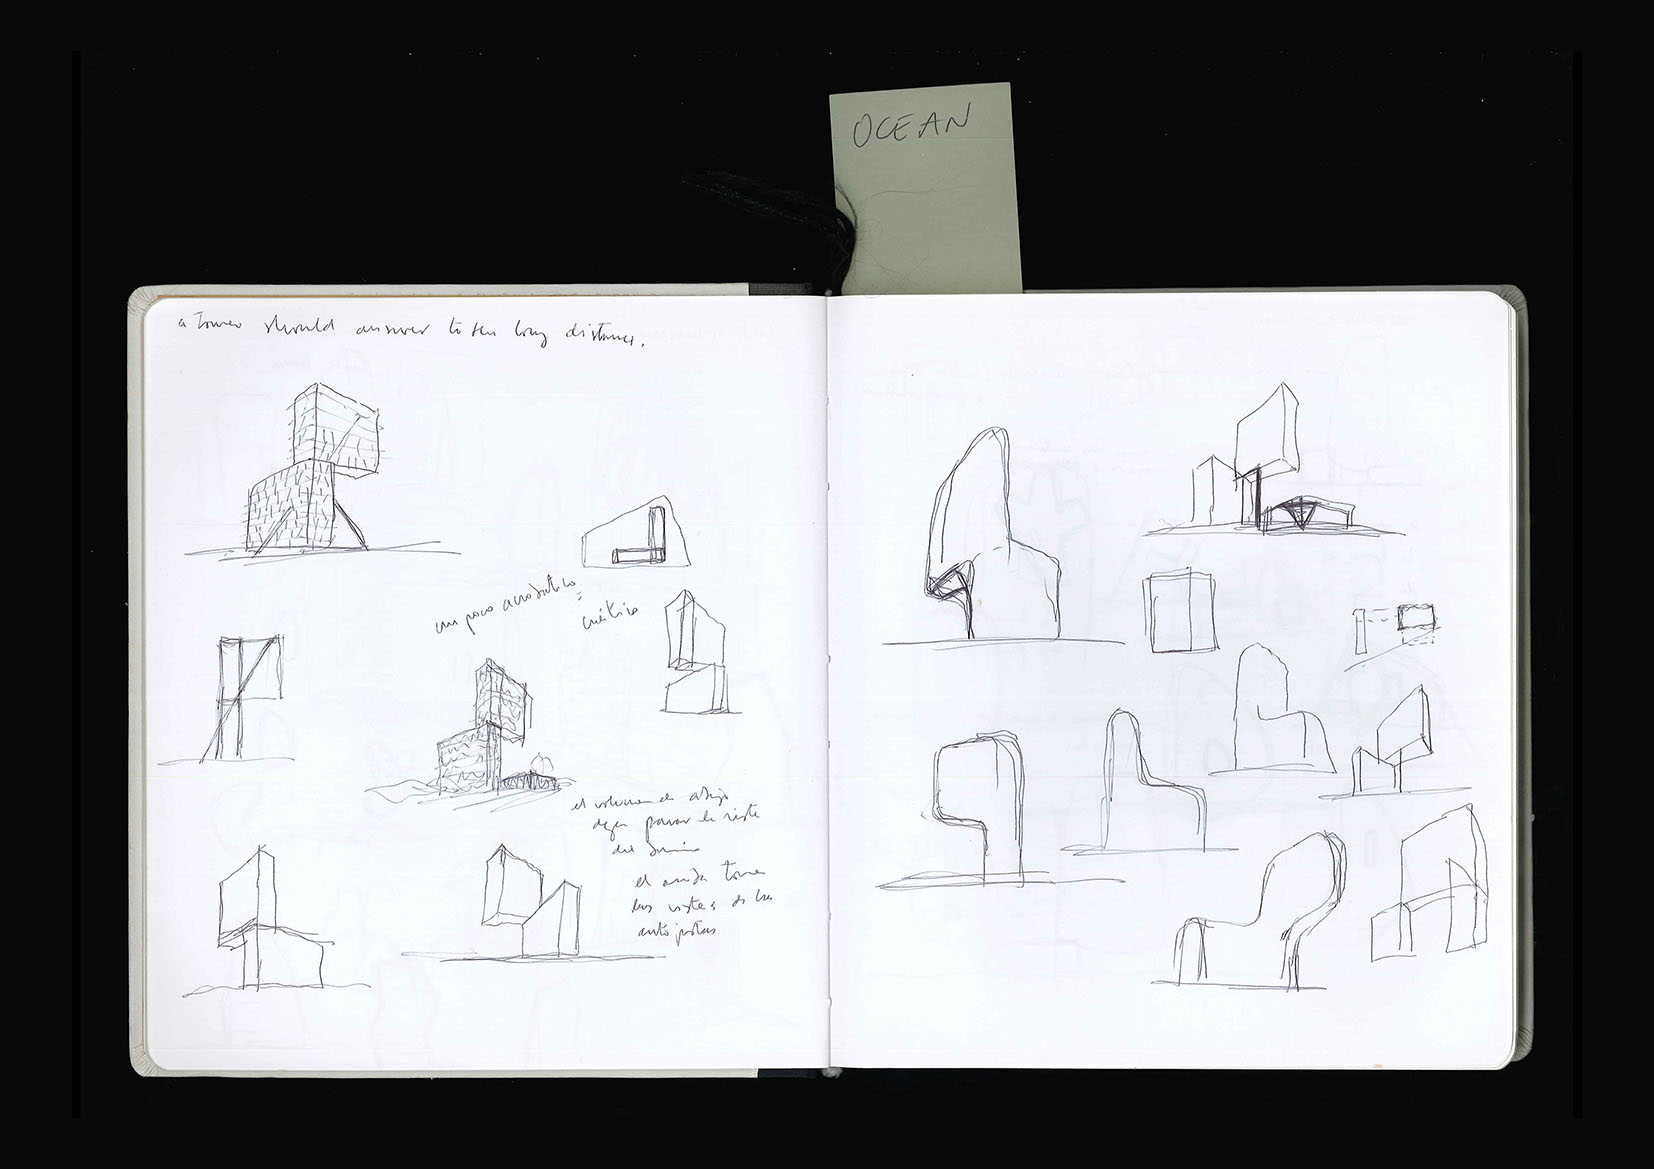 OCEAN
a tower should answer to the long distance.
un poco acrobático
=
el volumen de abajo
deja pasar la
del
el arriba toma
las vistas de las
autopistas